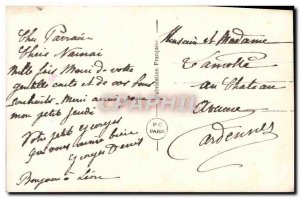 Cher Parrain
Chère Nainai
Mille fois Merci de votre
gentille carte et de vos bons
souhaits. Merci aussi pour
mon petit Jeudi
Votre petit Georges
qui vous aime bien
Georges Denis
Bonjour à Léon
Fabrication Française
P-C
PARIS
Monsieur et Madame
au Chateau
Ardennes